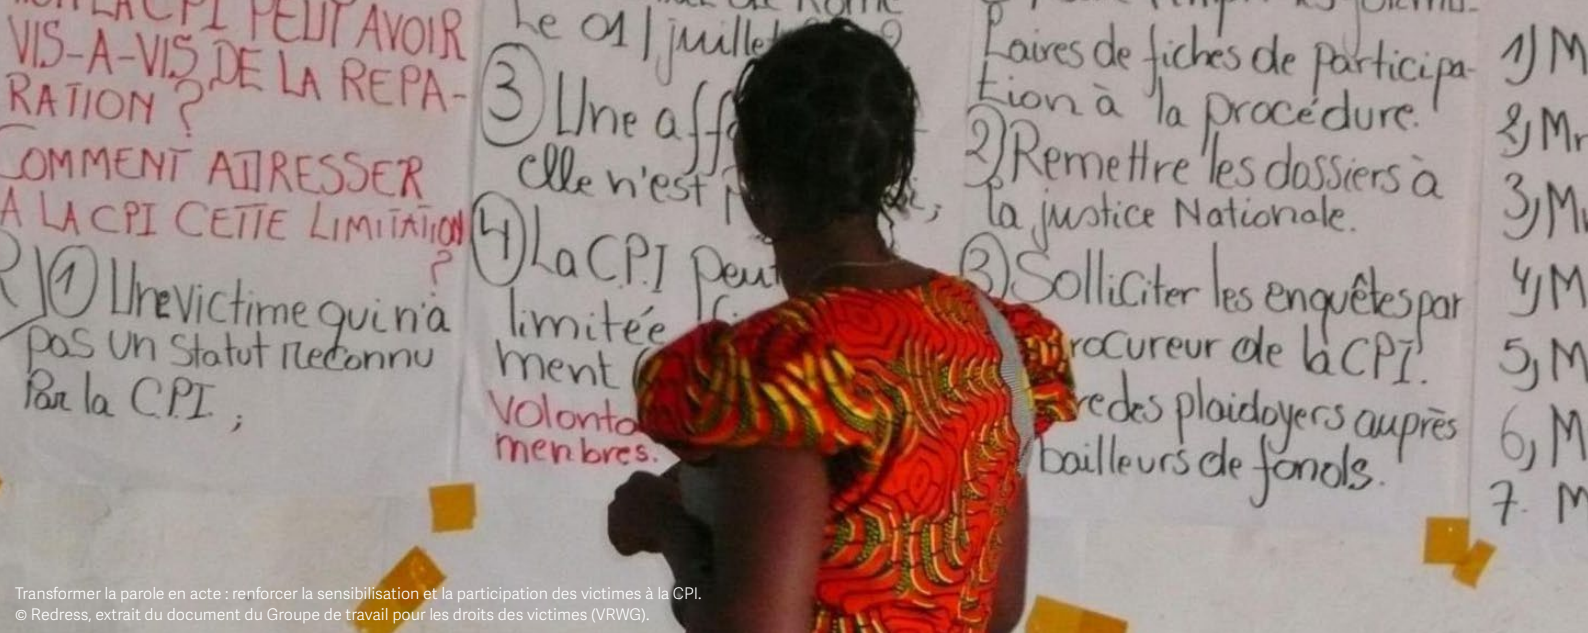 LA CPI PEUT AVOIR
VIS-A-VIS DE LA REPA-
RATION ?
COMMENT ADRESSER
A LA CPI CETTE LIMITATION
?
R) ① Une victime qui n'a
pas un statut reconnu
Par la C.P.I ;
Le 01 juillet
③ Une aff
elle n'est
④ La C.P.I peut
limitée
ment
volonta
menbres.
laires de fiches de participa-
tion à la procédure.
2) Remettre les dossiers à
la justice Nationale.
③ Solliciter les enquêtes par
rocureur de la CPI.
re des plaidoyers auprès
bailleurs de fonds.
1) M
2) Mr
3) M
4) M
5) M
6) M
7. M
Transformer la parole en acte : renforcer la sensibilisation et la participation des victimes à la CPI.
© Redress, extrait du document du Groupe de travail pour les droits des victimes (VRWG).